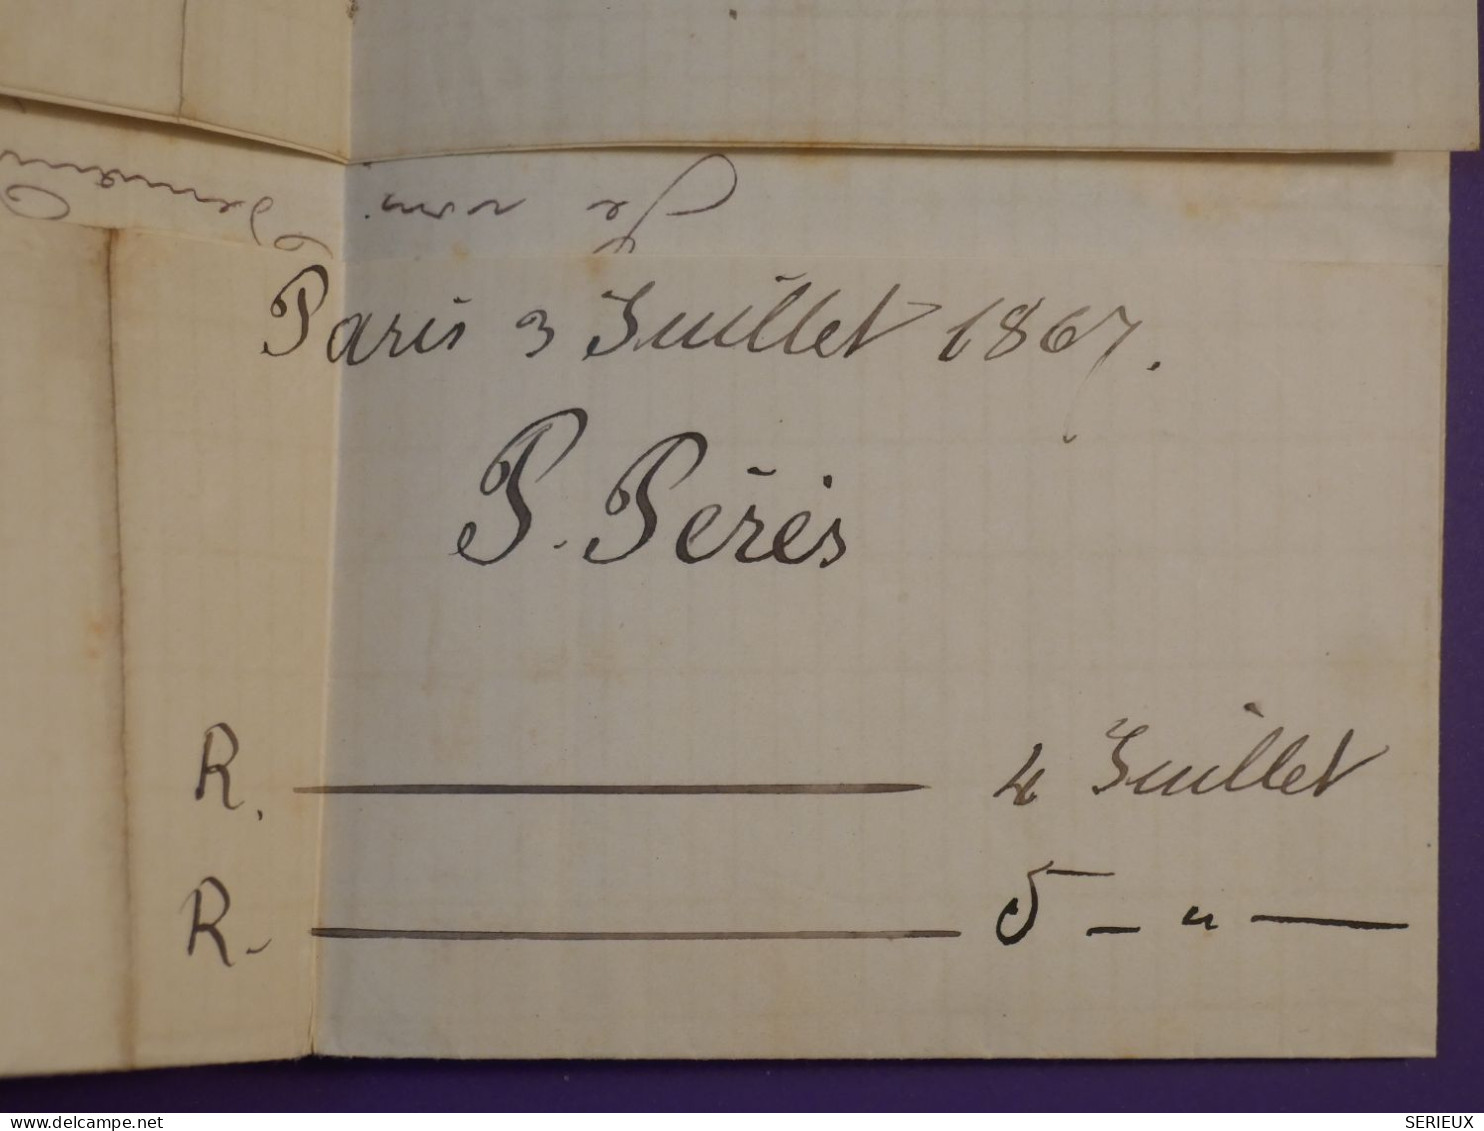 Paris 3 Juillet 1867.
P. Pérès
R. ——— 4 Juillet
R. ——— 5 — " —
delcampe.net
SERIEUX